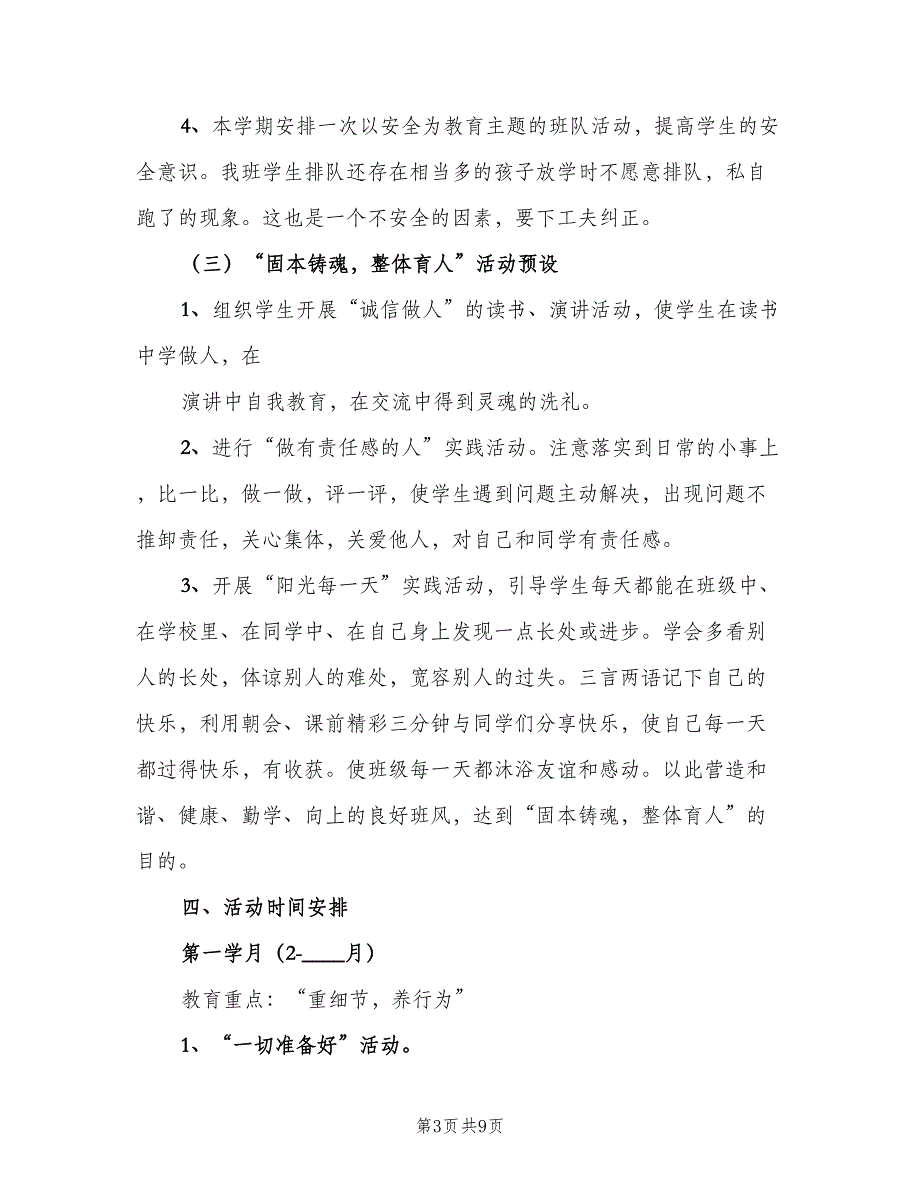 4、本学期安排一次以安全为教育主题的班队活动，提高学生的安
全意识。我班学生排队还存在相当多的孩子放学时不愿意排队，私自
跑了的现象。这也是一个不安全的因素，要下工夫纠正。
（三）“固本铸魂，整体育人”活动预设
1、组织学生开展“诚信做人”的读书、演讲活动，使学生在读书
中学做人，在
演讲中自我教育，在交流中得到灵魂的洗礼。
2、进行“做有责任感的人”实践活动。注意落实到日常的小事上
，比一比，做一做，评一评，使学生遇到问题主动解决，出现问题不
推卸责任，关心集体，关爱他人，对自己和同学有责任感。
3、开展“阳光每一天”实践活动，引导学生每天都能在班级中、
在学校里、在同学中、在自己身上发现一点长处或进步。学会多看别
人的长处，体谅别人的难处，宽容别人的过失。三言两语记下自己的
快乐，利用朝会、课前精彩三分钟与同学们分享快乐，使自己每一天
都过得快乐，有收获。使班级每一天都沐浴友谊和感动。以此营造和
谐、健康、勤学、向上的良好班风，达到“固本铸魂，整体育人”的
目的。
四、活动时间安排
第一学月（2-____月）
教育重点：“重细节，养行为”
1、“一切准备好”活动。
第3页共9页